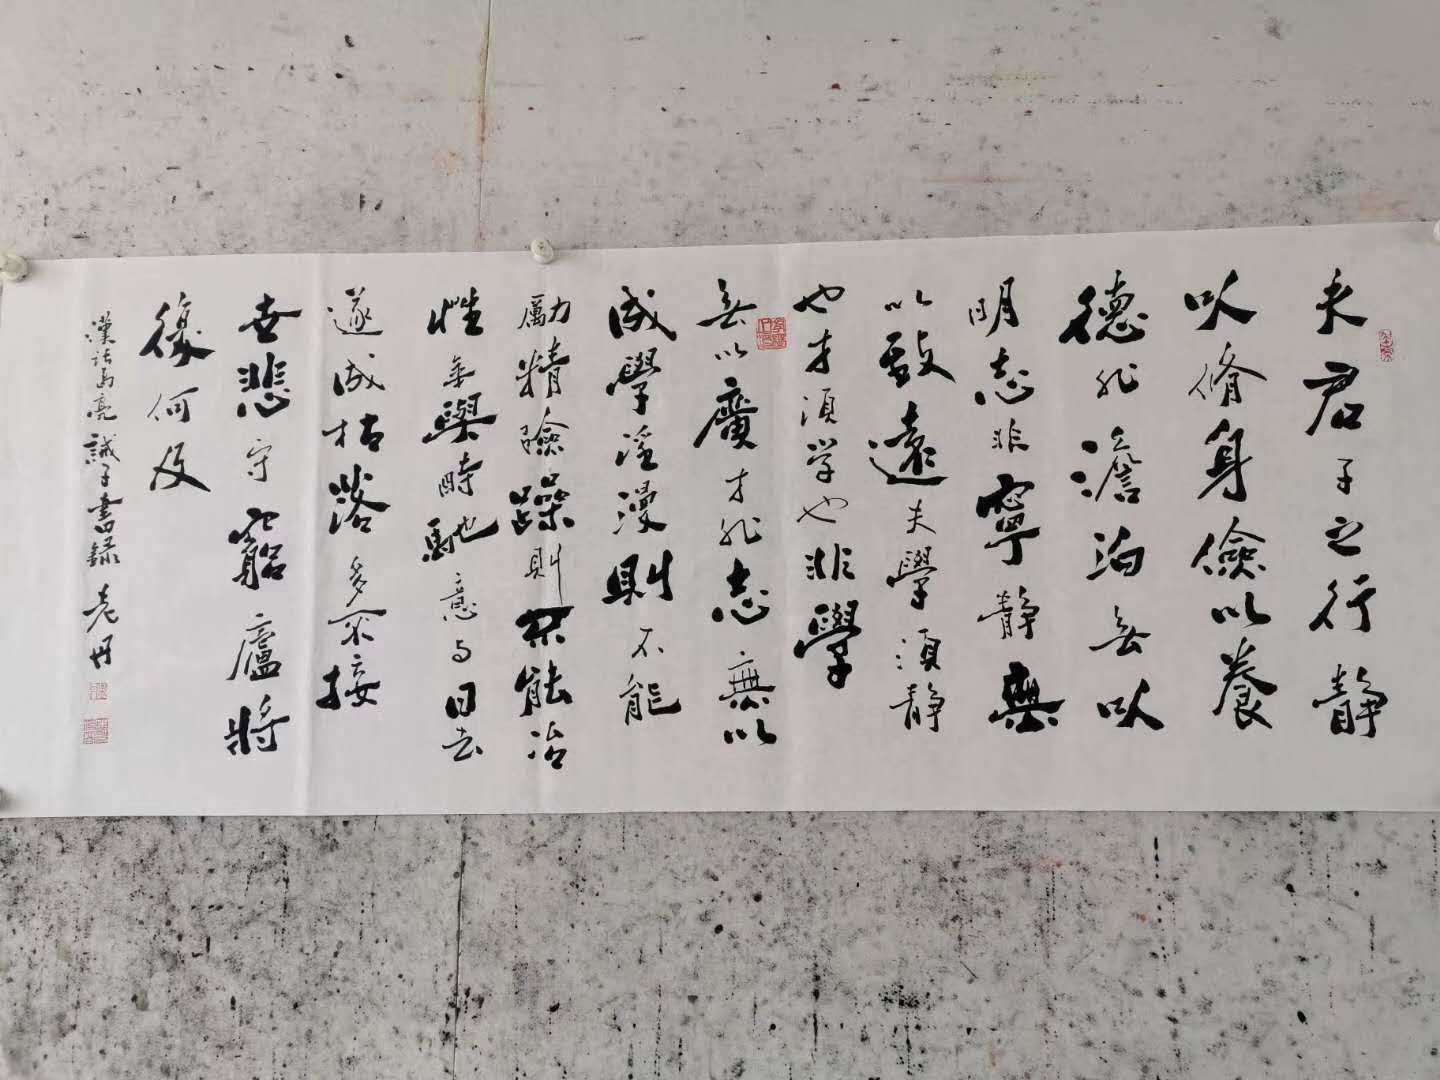 夫君子之行靜
以脩身儉以養
德非澹泊無以
明志非寧靜無
以致遠夫學須靜
也才須学也非學
無以廣才非志無以
成學淫漫則不能
勵精險躁則不能冶
性年與時馳意与日去
遂成枯落多不接
世悲守窮廬將
復何及
漢諸葛亮誡子書錄 老丹